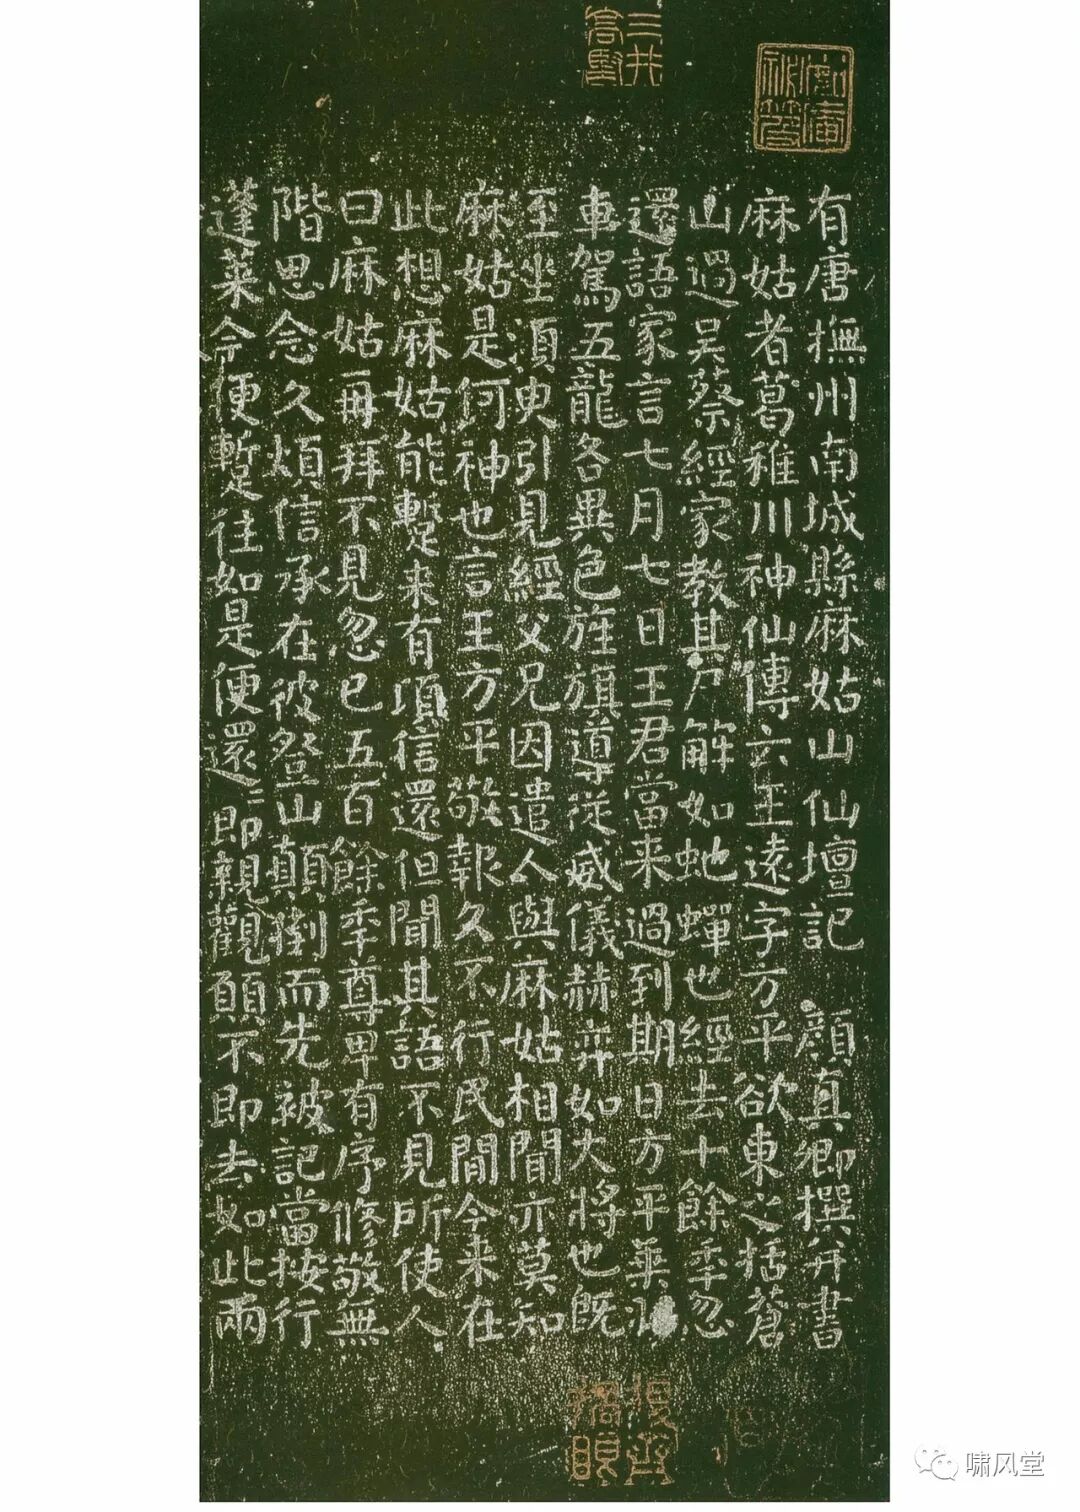 三井
高堅
有唐撫州南城縣麻姑山仙壇記 顏真卿撰并書
麻姑者葛稚川神仙傳云王遠字方平欲東之括蒼
山過吳蔡經家教其尸解如虵蟬也經去十餘季忽
還語家言七月七日王君當来過到期日方平乘
車駕五龍各異色旌旗導從威儀赫弈如大將也既
至坐須臾引見經父兄因遣人與麻姑相聞亦莫知
麻姑是何神也言王方平敬報久不行民間今来在
此想麻姑能蹔来有頃信還但聞其語不見所使人
曰麻姑再拜不見忽已五百餘季尊卑有序修敬無
階思念久煩信承在彼登山顛倒而先被記當按行
蓬萊今便蹔往如是便還=即親觀願不即去如此兩
啸风堂